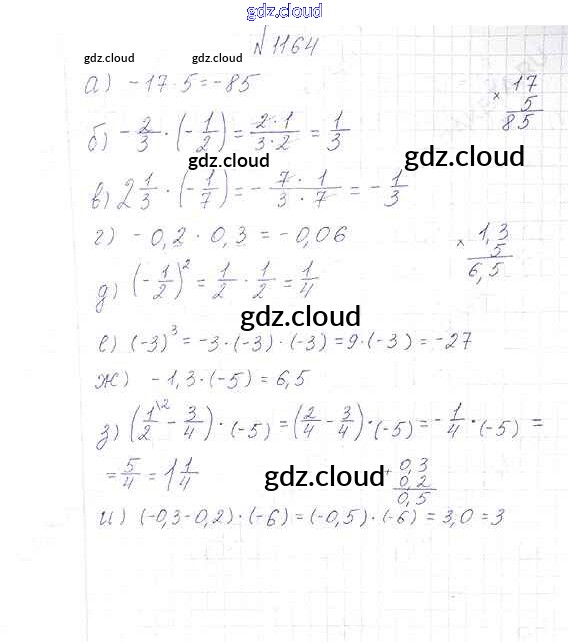 gdz.cloud
№1164
gdz.cloud gdz.cloud
а) -17·5=-85
× 17
5
85
б) -2/3 · (-1/2) = 2·1/3·2 = 1/3
gdz.cloud gdz.cloud
в) 2 1/3 · (-1/7) = -7·1/3·7 = -1/3
г) -0,2 · 0,3 = -0,06
× 1,3
5
6,5
д) (-1/2)² = 1/2 · 1/2 = 1/4
gdz.cloud
е) (-3)³ = -3·(-3)·(-3) = 9·(-3) = -27
ж) -1,3·(-5) = 6,5
з) (1\2/2 - 3/4)·(-5) = (2/4 - 3/4)·(-5) = -1/4·(-5) =
= 5/4 = 1 1/4
gdz.cloud
+ 0,3
0,2
0,5
и) (-0,3-0,2)·(-6) = (-0,5)·(-6) = 3,0 = 3